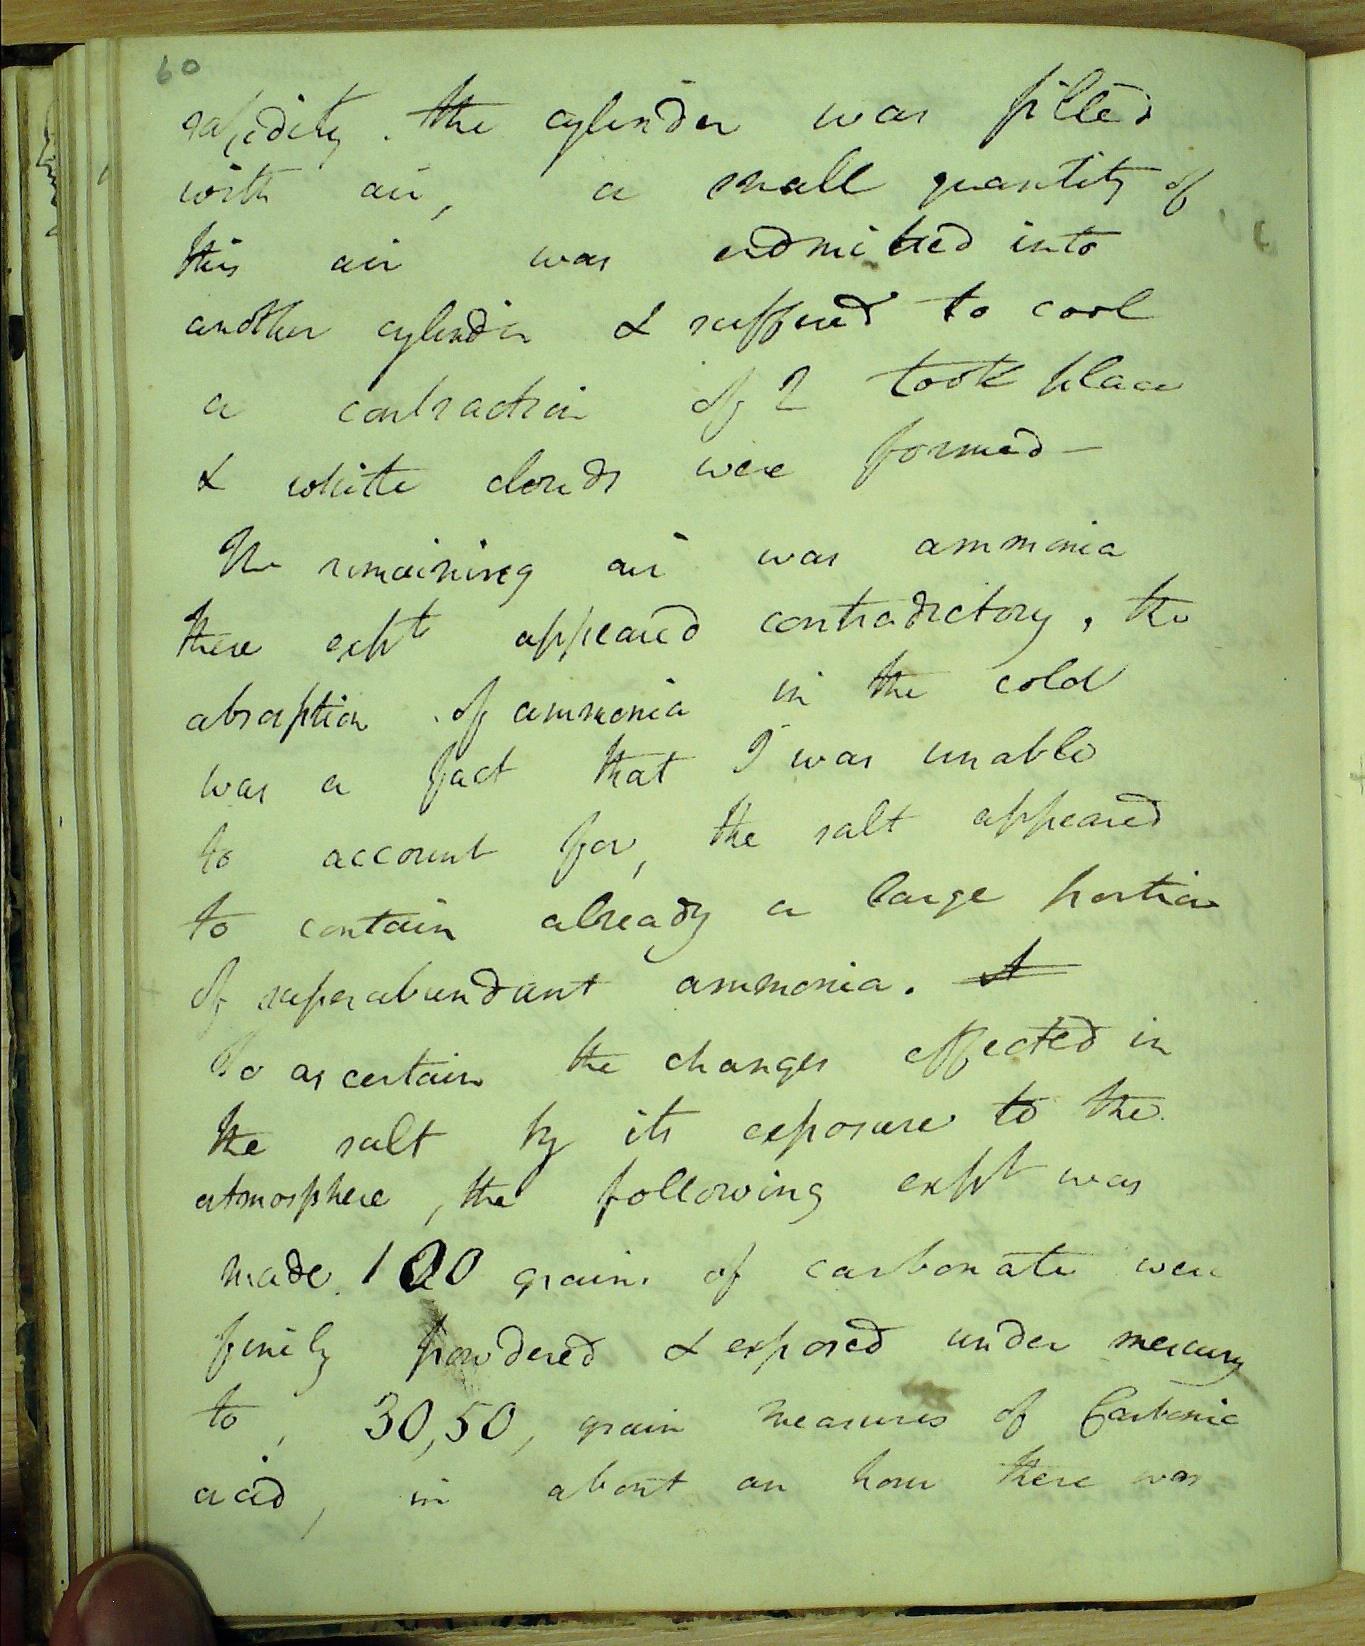 60
rapidity. the cylinder was filled
with air, a small quantity of
this air was admitted into
another cylinder & suffered to cool
a contraction of 2 took place
& white clouds were formed—
The remaining air was ammonia
these expts appeared contradictory, the
absorption of ammonia in the cold
was a fact that I was unable
to account for, the salt appeared
to contain already a large portion
of superabundant ammonia.
To ascertain the changes effected in
the salt by its exposure to the
atmosphere, the following expt was
made. 100 grains of carbonate were
finely powdered & exposed under mercury
to, 30,50, grain measures of Carbonic
acid, in about an hour there was